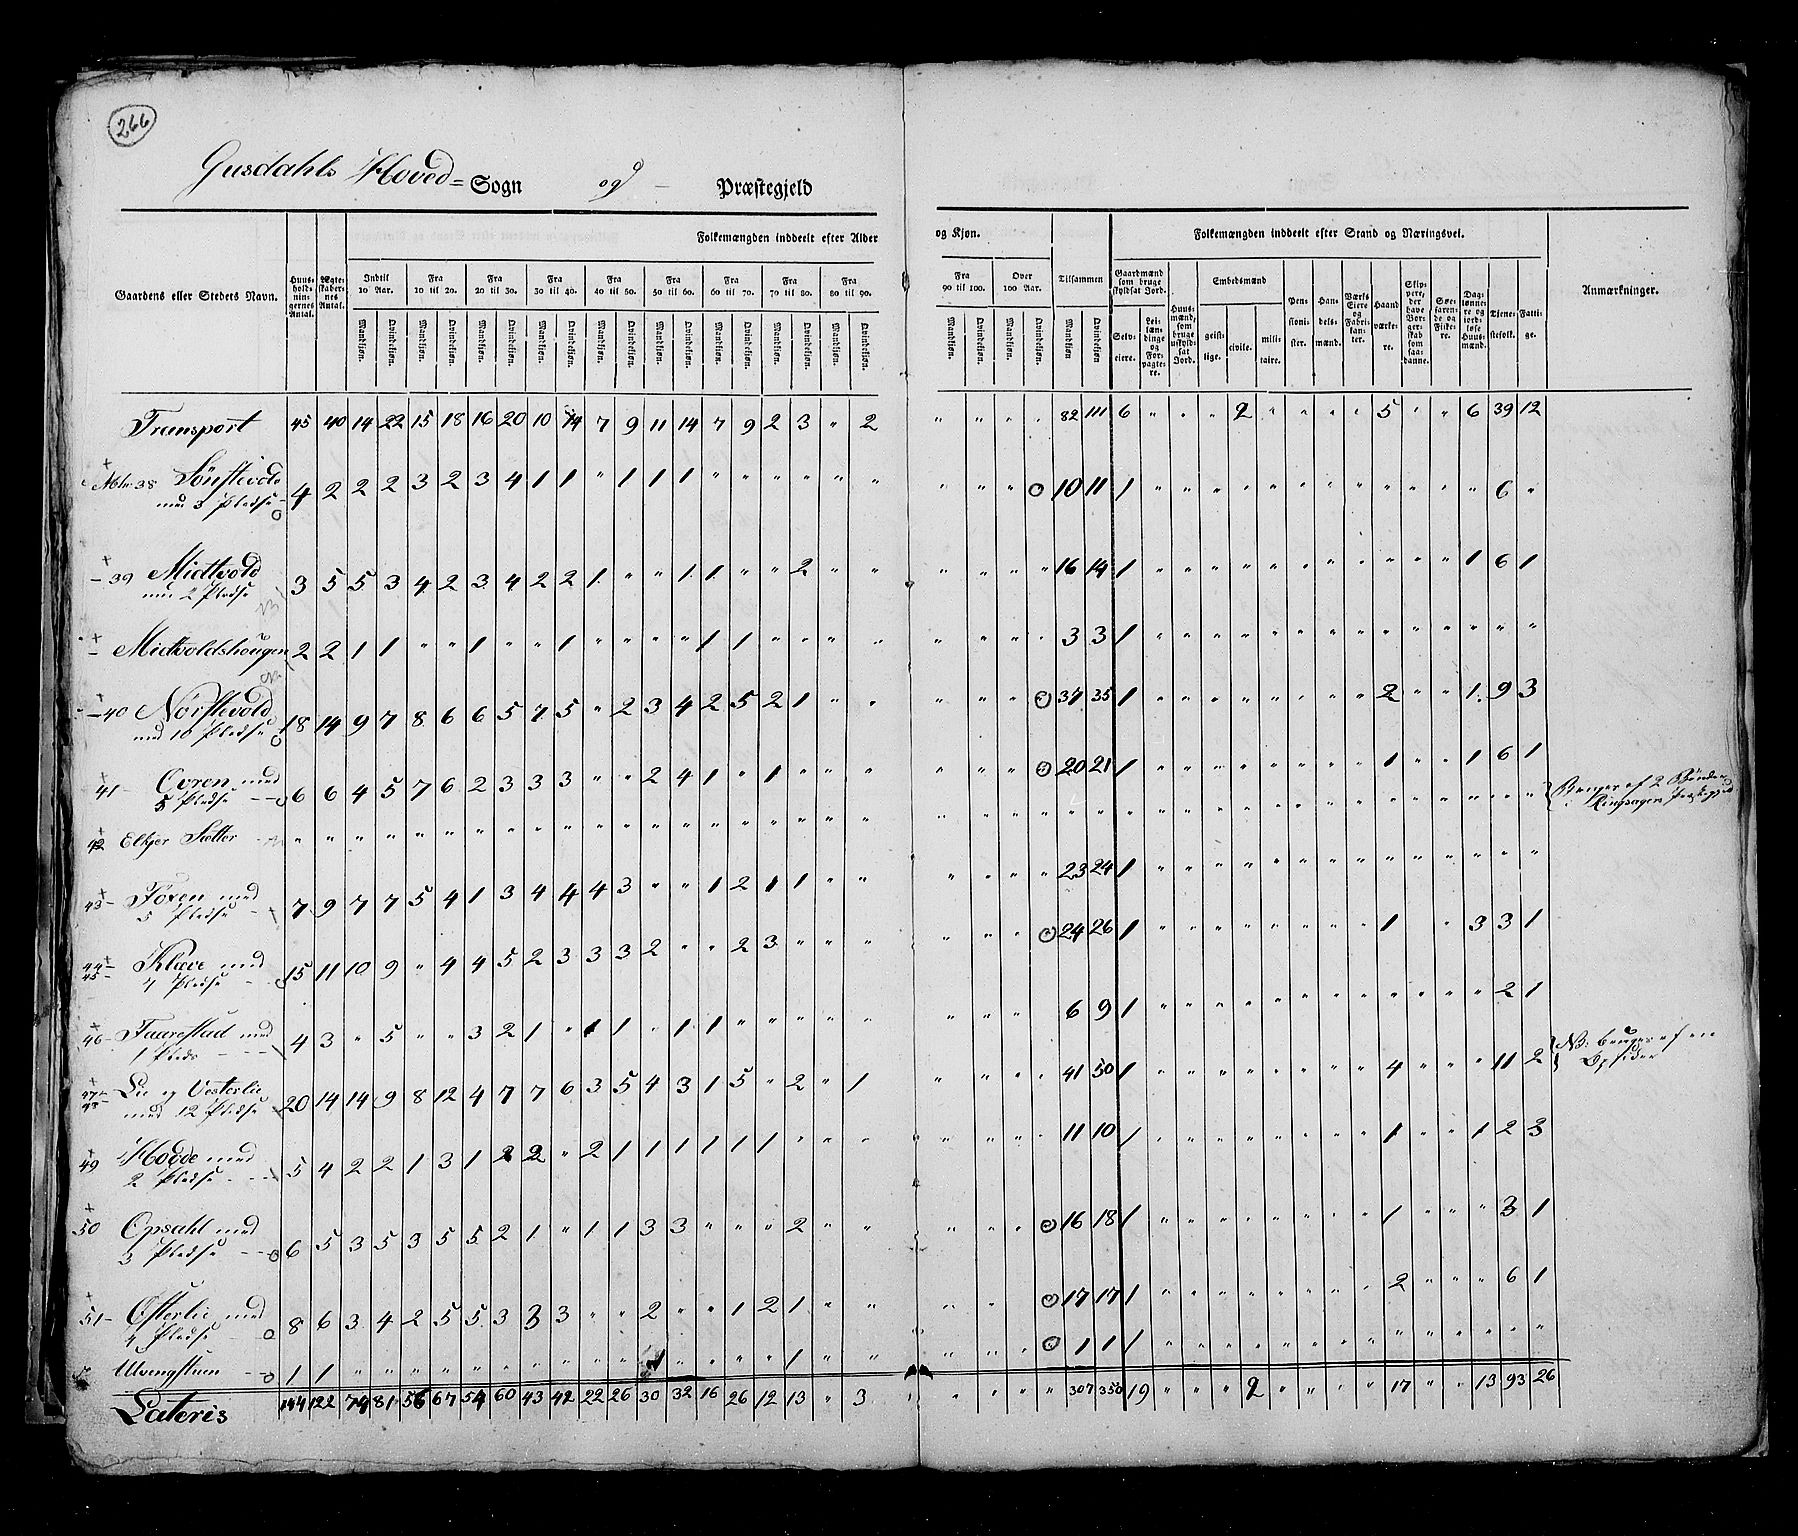 266
Gusdahls Hoved= Sogn og Præstegjeld
Folkemængden inddeelt efter Alder og Kjøn. Folkemængden inddeelt efter Stand og Næringsvei.
Gaardens eller Stedets Navn. Huus-hold-nin-gernes Antal. Ægte-skaber-nes Antal. Indtil 10 Aar. Fra 10 til 20. Fra 20 til 30. Fra 30 til 40. Fra 40 til 50. Fra 50 til 60. Fra 60 til 70. Fra 70 til 80. Fra 80 til 90. Fra 90 til 100. Over 100 Aar. Tilsammen Gaardmænd som bruge skyldsat Jord. Huus-mænd, som bruge uskyld-sat Jord. Embedsmænd Pen-sioni-ster. Han-dels-mænd. Værks Eiere og Fabri-kan-ter. Haand værke-re. Skip-pere, der have Bor-ger-skab som saa-danne. Søe-farende og Fiske-re. Dag-lønne-re og jord-løse Huus-mænd. Tjene-stefolk. Fatti-ge. Anmærkninger.
Mandkjøn. Qvindekjøn. Mandkjøn. Qvindekjøn. Mandkjøn. Qvindekjøn. Mandkjøn. Qvindekjøn. Mandkjøn. Qvindekjøn. Mandkjøn. Qvindekjøn. Mandkjøn. Qvindekjøn. Mandkjøn. Qvindekjøn. Mandkjøn. Qvindekjøn. Mandkjøn. Qvindekjøn. Mandkjøn. Qvindekjøn. Mandkjøn Qvindekjøn. Selv-eiere. Lei-læn-dinge og For-pagte-re. geist-lige. civile. mili-taire.
Transport 45 40 14 22 15 18 16 20 10 14 7 9 11 14 7 9 2 3 " 2 " " " " 82 111 6 " " " 2 " " " " 5 " " 6 39 12
38 Sönstevold 4 2 2 2 3 2 3 4 1 1 " 1 1 1 " " " " " " " " " 10 11 1 " " " " " " " " " " " " 6 "
med 3 Pladse
39 Midtvold 3 5 5 3 4 2 3 4 2 2 1 " " 1 1 " " 2 " " " " " " 16 14 1 " " " " " " " " " " " 1 6 1
med 2 Pladse
Midtvoldshougen 2 2 1 1 " " 1 " " 1 " " " " 1 1 " " " " " " " " 3 3 1 " " " " " " " " " " " " " "
40 Nørstevold 18 14 9 7 8 6 6 5 7 5 " 2 3 4 2 5 2 1 " " " " " 37 35 1 " " " " " " " " 2 " " 1 9 3
med 10 Pladse
41 Ovren med 6 6 4 5 7 6 2 3 3 3 " " 2 4 1 " 1 " " " " " " 20 21 1 " " " " " " " " 1 " " 1 6 1
5 Pladse
42 Elkjer Sætter " " " " " " " " " " " " " " " " " " " " " " " " " " " " " " " " " " " " " " " " "
Bruges af 2 Bønder
i Ringsagers Præstegjeld
43 Foxen med 7 9 7 7 5 4 1 3 4 4 4 3 " " 1 2 1 1 " " " " " " 23 24 1 " " " " " " " " " " " " " "
5 Pladse
44 45 Klæve med 15 11 10 9 " 4 4 5 2 3 3 3 2 " " 2 3 " " " " " " 24 26 1 " " " " " " " " 1 " 3 3 1
4 Pladse
46 Taarestad med 4 3 " 5 " " 3 2 1 " 1 1 " 1 1 " " " " " " " " 6 9 1 " " " " " " " " " " " " 2 1
1 Plads
47 48 Lie og Vesterlie 20 14 14 9 8 12 4 7 7 6 3 5 4 3 1 5 " 2 " 1 " " " " 41 50 1 " " " " " " " " 4 " " " 11 2
med 12 Pladse
NB: bruges af en
Opsider
49 Hodde med 5 4 2 2 1 3 1 2 2 " 2 1 1 1 1 1 1 " " " " " " " 11 10 1 " " " " " " " " 1 " " 1 2 3
2 Pladse
50 Opsahl med 6 5 3 5 3 5 5 2 1 " 1 1 3 3 " " " 2 " " " " " 16 18 1 " " " " " " " " 1 " " " 3 1
3 Pladse
51 Østerlie med 8 6 3 4 2 5 5 3 3 3 " " 2 " " 1 2 1 " " " " 17 17 1 " " " " " " " " 2 " " " 6 1
4 Pladse
Ulvengstuen 1 1 " " " " " " " " " " 1 " " " " 1 " " " " " 1 1 1 " " " " " " " " " " " " " "
Lateris 144 122 74 81 56 67 54 60 43 42 22 26 30 32 16 26 12 13 " 3 " " " " 307 350 19 " " " 2 " " " " 17 " " 13 93 26